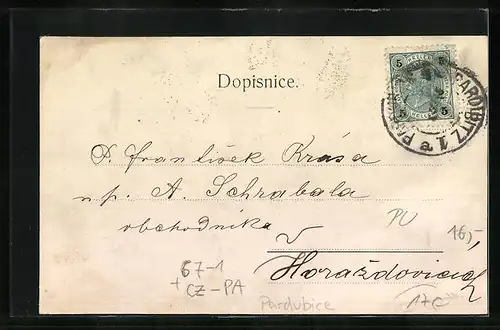 5 5
5 5
PARDUBITZ 1
Dopisnice.
P. František Krása
n/p. A. Schrabala
obchodníka
PU
16,-
v
67-1
+ CZ-PA
Horažďovicích
Pardubice
17c